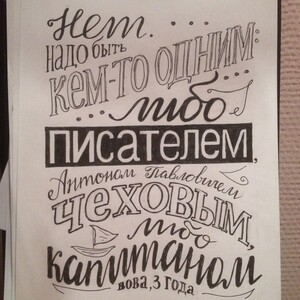 Нет...
надо быть
кем-то одним:
... либо ...
писателем,
Антоном Павловичем
чеховым,
либо
капитаном
вова, 3 года